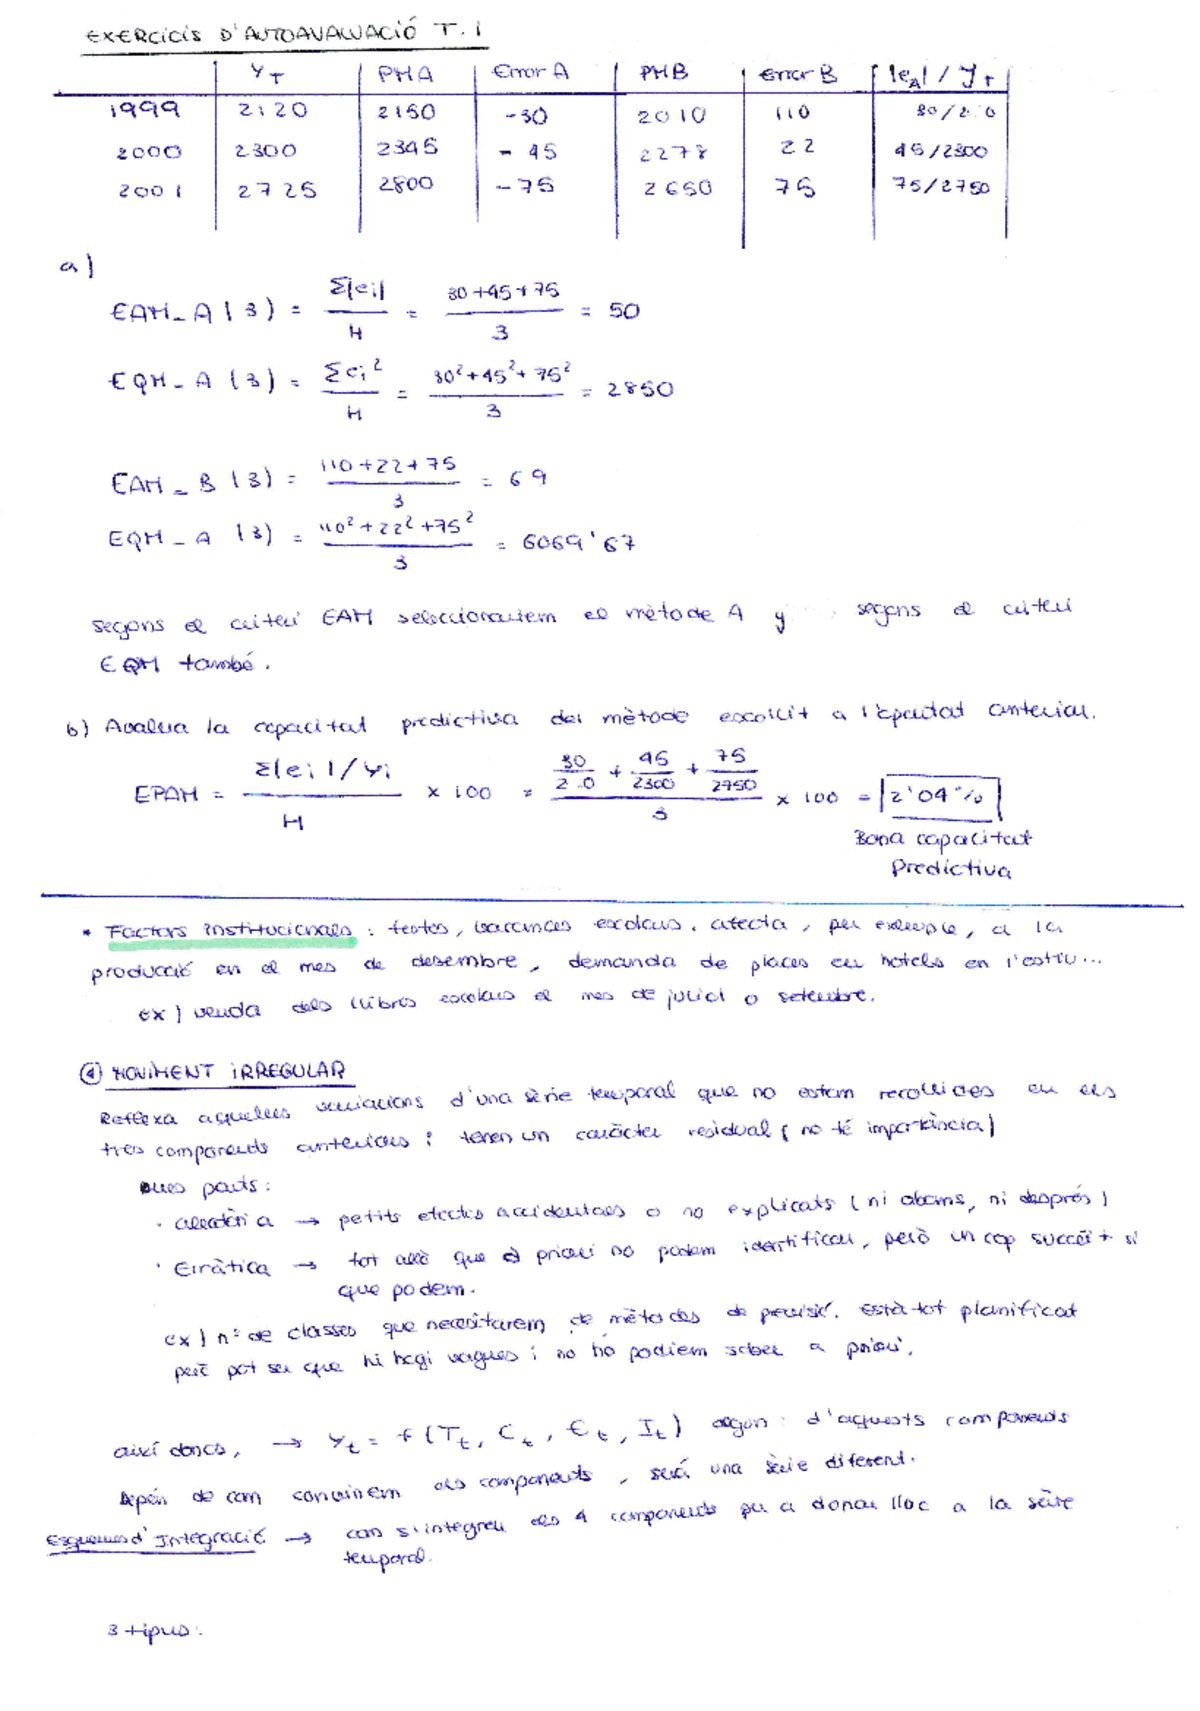 EXERCICIS D'AUTOAVALUACIÓ T.1
Y_T PMA Error A PMB Error B |e_A| / Y_T
1999 2120 2150 -30 2010 110 30/2 0
2000 2300 2345 - 45 2278 22 45/2300
2001 2725 2800 -75 2650 75 75/2750
a)
EAM_A (3) = Σ|ei| / H = 30+45+75 / 3 = 50
EQM_A (3) = Σei² / H = 30²+45²+75² / 3 = 2850
EAM_B (3) = 110+22+75 / 3 = 69
EQM_A (3) = 110²+22²+75² / 3 = 6069'67
segons el criteri EAM seleccionarem el mètode A y segons el criteri
EQM també.
b) Avalua la capacitat predictiva del mètode escollit a l'apartat anterior.
EPAM = Σ|ei|/Yi / H x 100 = 30/2 0 + 45/2300 + 75/2750 / 3 x 100 = 2'04%
Bona capacitat
Predictiva
* Factors institucionals: festes, vacances escolars. afecta, per exemple, a la
producció en el mes de desembre, demanda de places en hotels en l'estiu...
ex) venda dels llibres escolars el mes de juliol o setembre.
④ MOVIMENT IRREGULAR
Reflexa aquelles variacions d'una sèrie temporal que no estam recollides en els
tres components anteriors i tenen un caràcter residual (no té importància)
Dues parts:
· aleatòria → petits efectes accidentals o no explicats (ni abans, ni després)
· Erràtica → tot allò que a priori no podem identificar, però un cop succeït sí
que podem.
ex) nº de classes que necesitarem de mètodes de previsió. Està tot planificat
però pot ser que hi hagi vagues i no ho podiem saber a priori.
així doncs, → Y_t = f (T_t, C_t, E_t, I_t) algun d'aquests components
Depèn de com convinem els components, serà una sèrie diferent.
Esquemes d'Integració → com s'integren els 4 components per a donar lloc a la sèrie
temporal.
3 tipus: